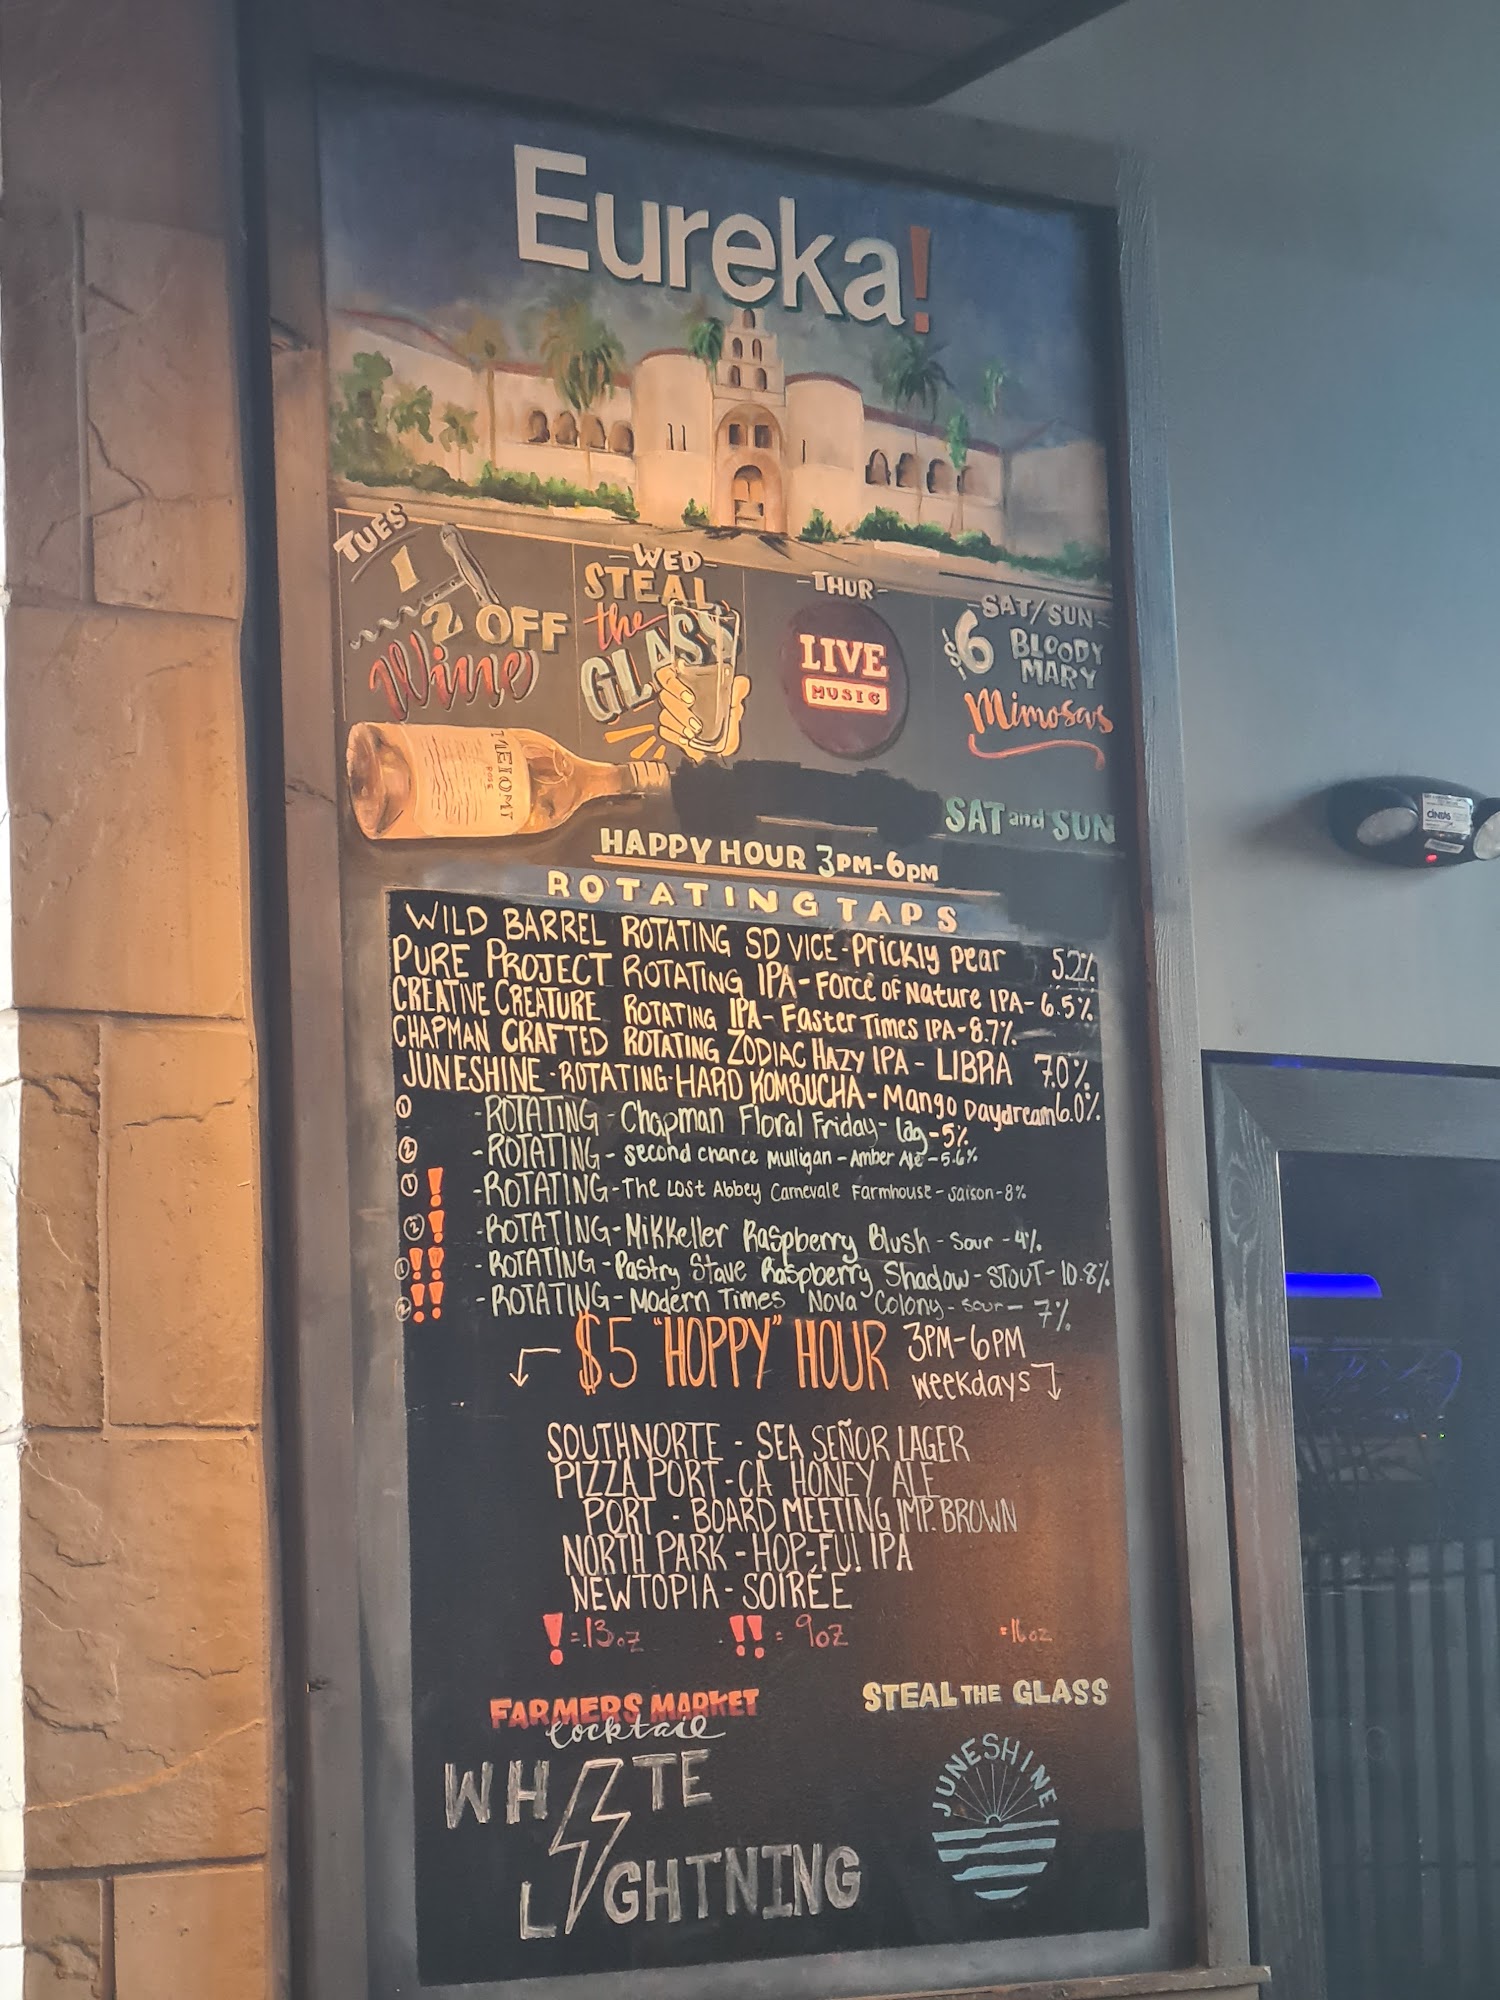 Eureka!
TUES
1
2 OFF
Wine
-WED-
STEAL
the
GLASS
-THUR-
LIVE
MUSIC
-SAT/SUN-
$6 BLOODY
MARY
Mimosas
MEIOMI
ROSÉ
SAT and SUN
HAPPY HOUR 3PM-6PM
ROTATING TAPS
WILD BARREL ROTATING SD VICE-Prickly pear 5.2%
PURE PROJECT ROTATING IPA-Force of Nature IPA-6.5%
CREATIVE CREATURE ROTATING IPA-Faster Times IPA-8.7%
CHAPMAN CRAFTED ROTATING ZODIAC HAZY IPA - LIBRA 7.0%
JUNESHINE-ROTATING-HARD KOMBUCHA-Mango Daydream 6.0%
1 -ROTATING-Chapman Floral Friday-lag-5%
2 -ROTATING-second chance Mulligan-Amber Ale-5.6%
1 ! -ROTATING-The Lost Abbey Carnevale Farmhouse-saison-8%
2 ! -ROTATING-Mikkeller Raspberry Blush-sour-4%
1 !! -ROTATING-Pastry Stave Raspberry Shadow-STOUT-10.8%
2 !! -ROTATING-Modern Times Nova Colony-sour-7%
$5 "HOPPY" HOUR 3PM-6PM
weekdays
SOUTHNORTE - SEA SEÑOR LAGER
PIZZA PORT-CA HONEY ALE
PORT - BOARD MEETING IMP. BROWN
NORTH PARK-HOP-FU! IPA
NEWTOPIA-SOIRÉE
! = 13oz !! = 9oz =16oz
FARMERS MARKET
cocktail
WHITE
LIGHTNING
STEAL THE GLASS
JUNESHINE
CINTAS